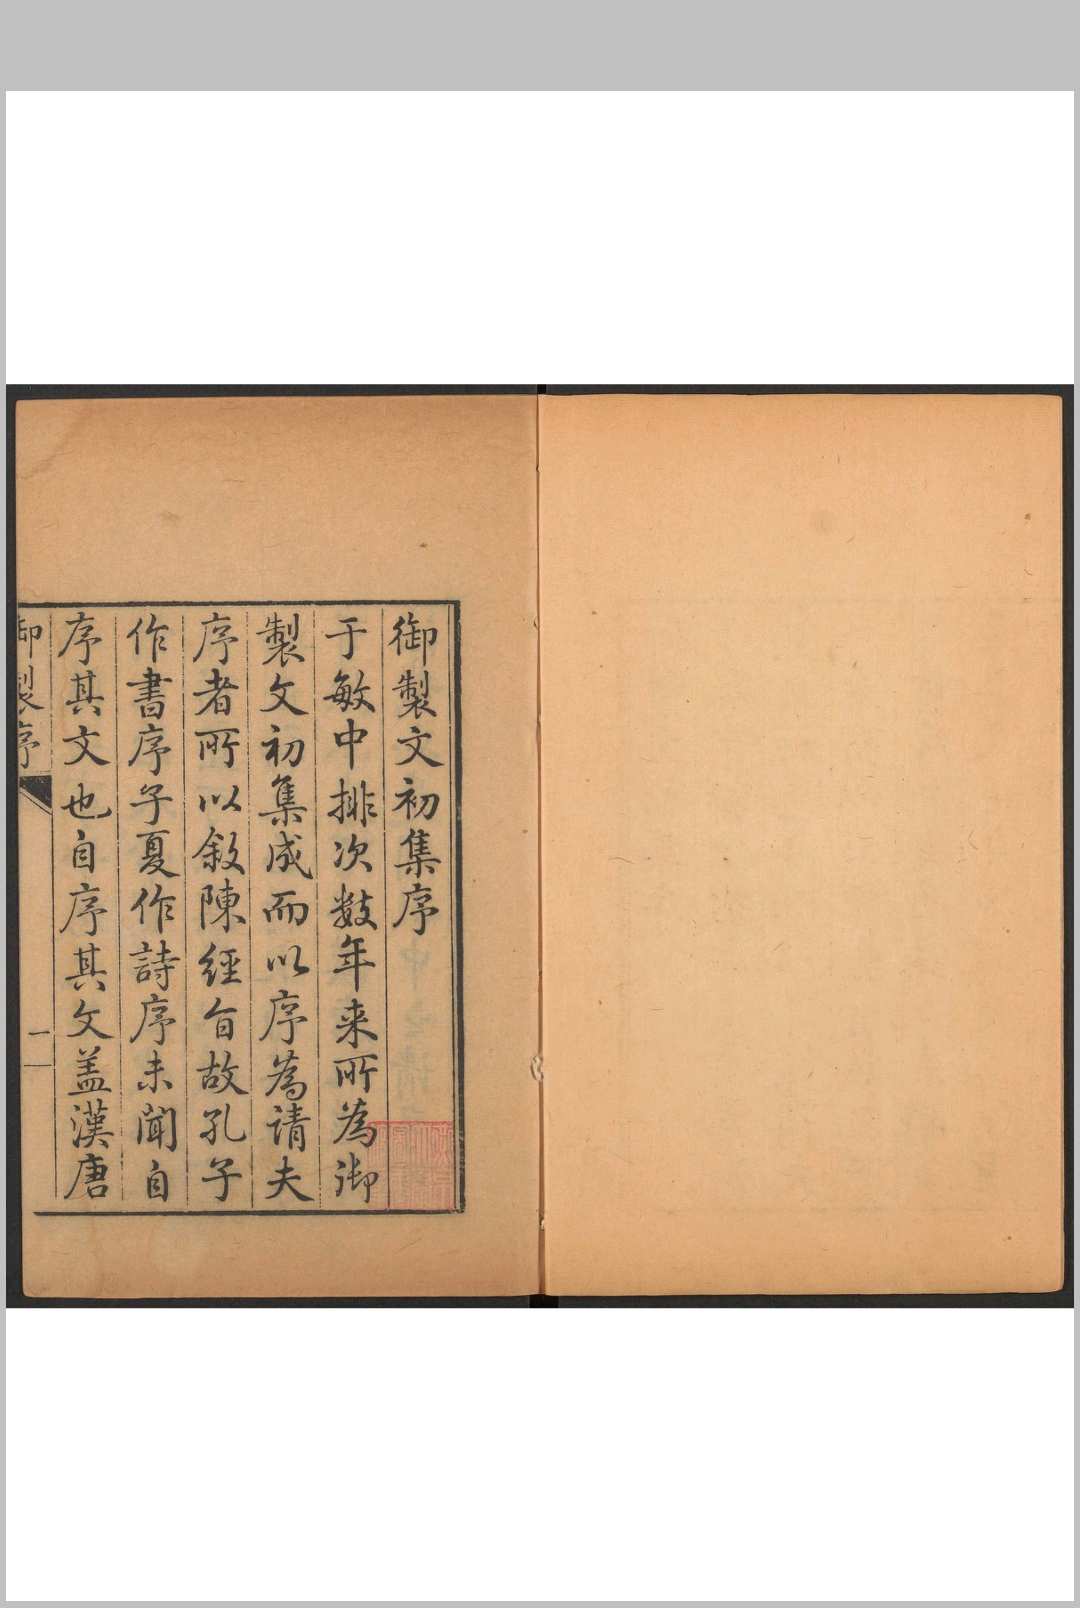 御製文初集序
于敏中排次數年来所為御
製文初集成而以序為请夫
序者所以敘陳經旨故孔子
作書序子夏作詩序未聞自
序其文也自序其文盖漢唐
御製序
一